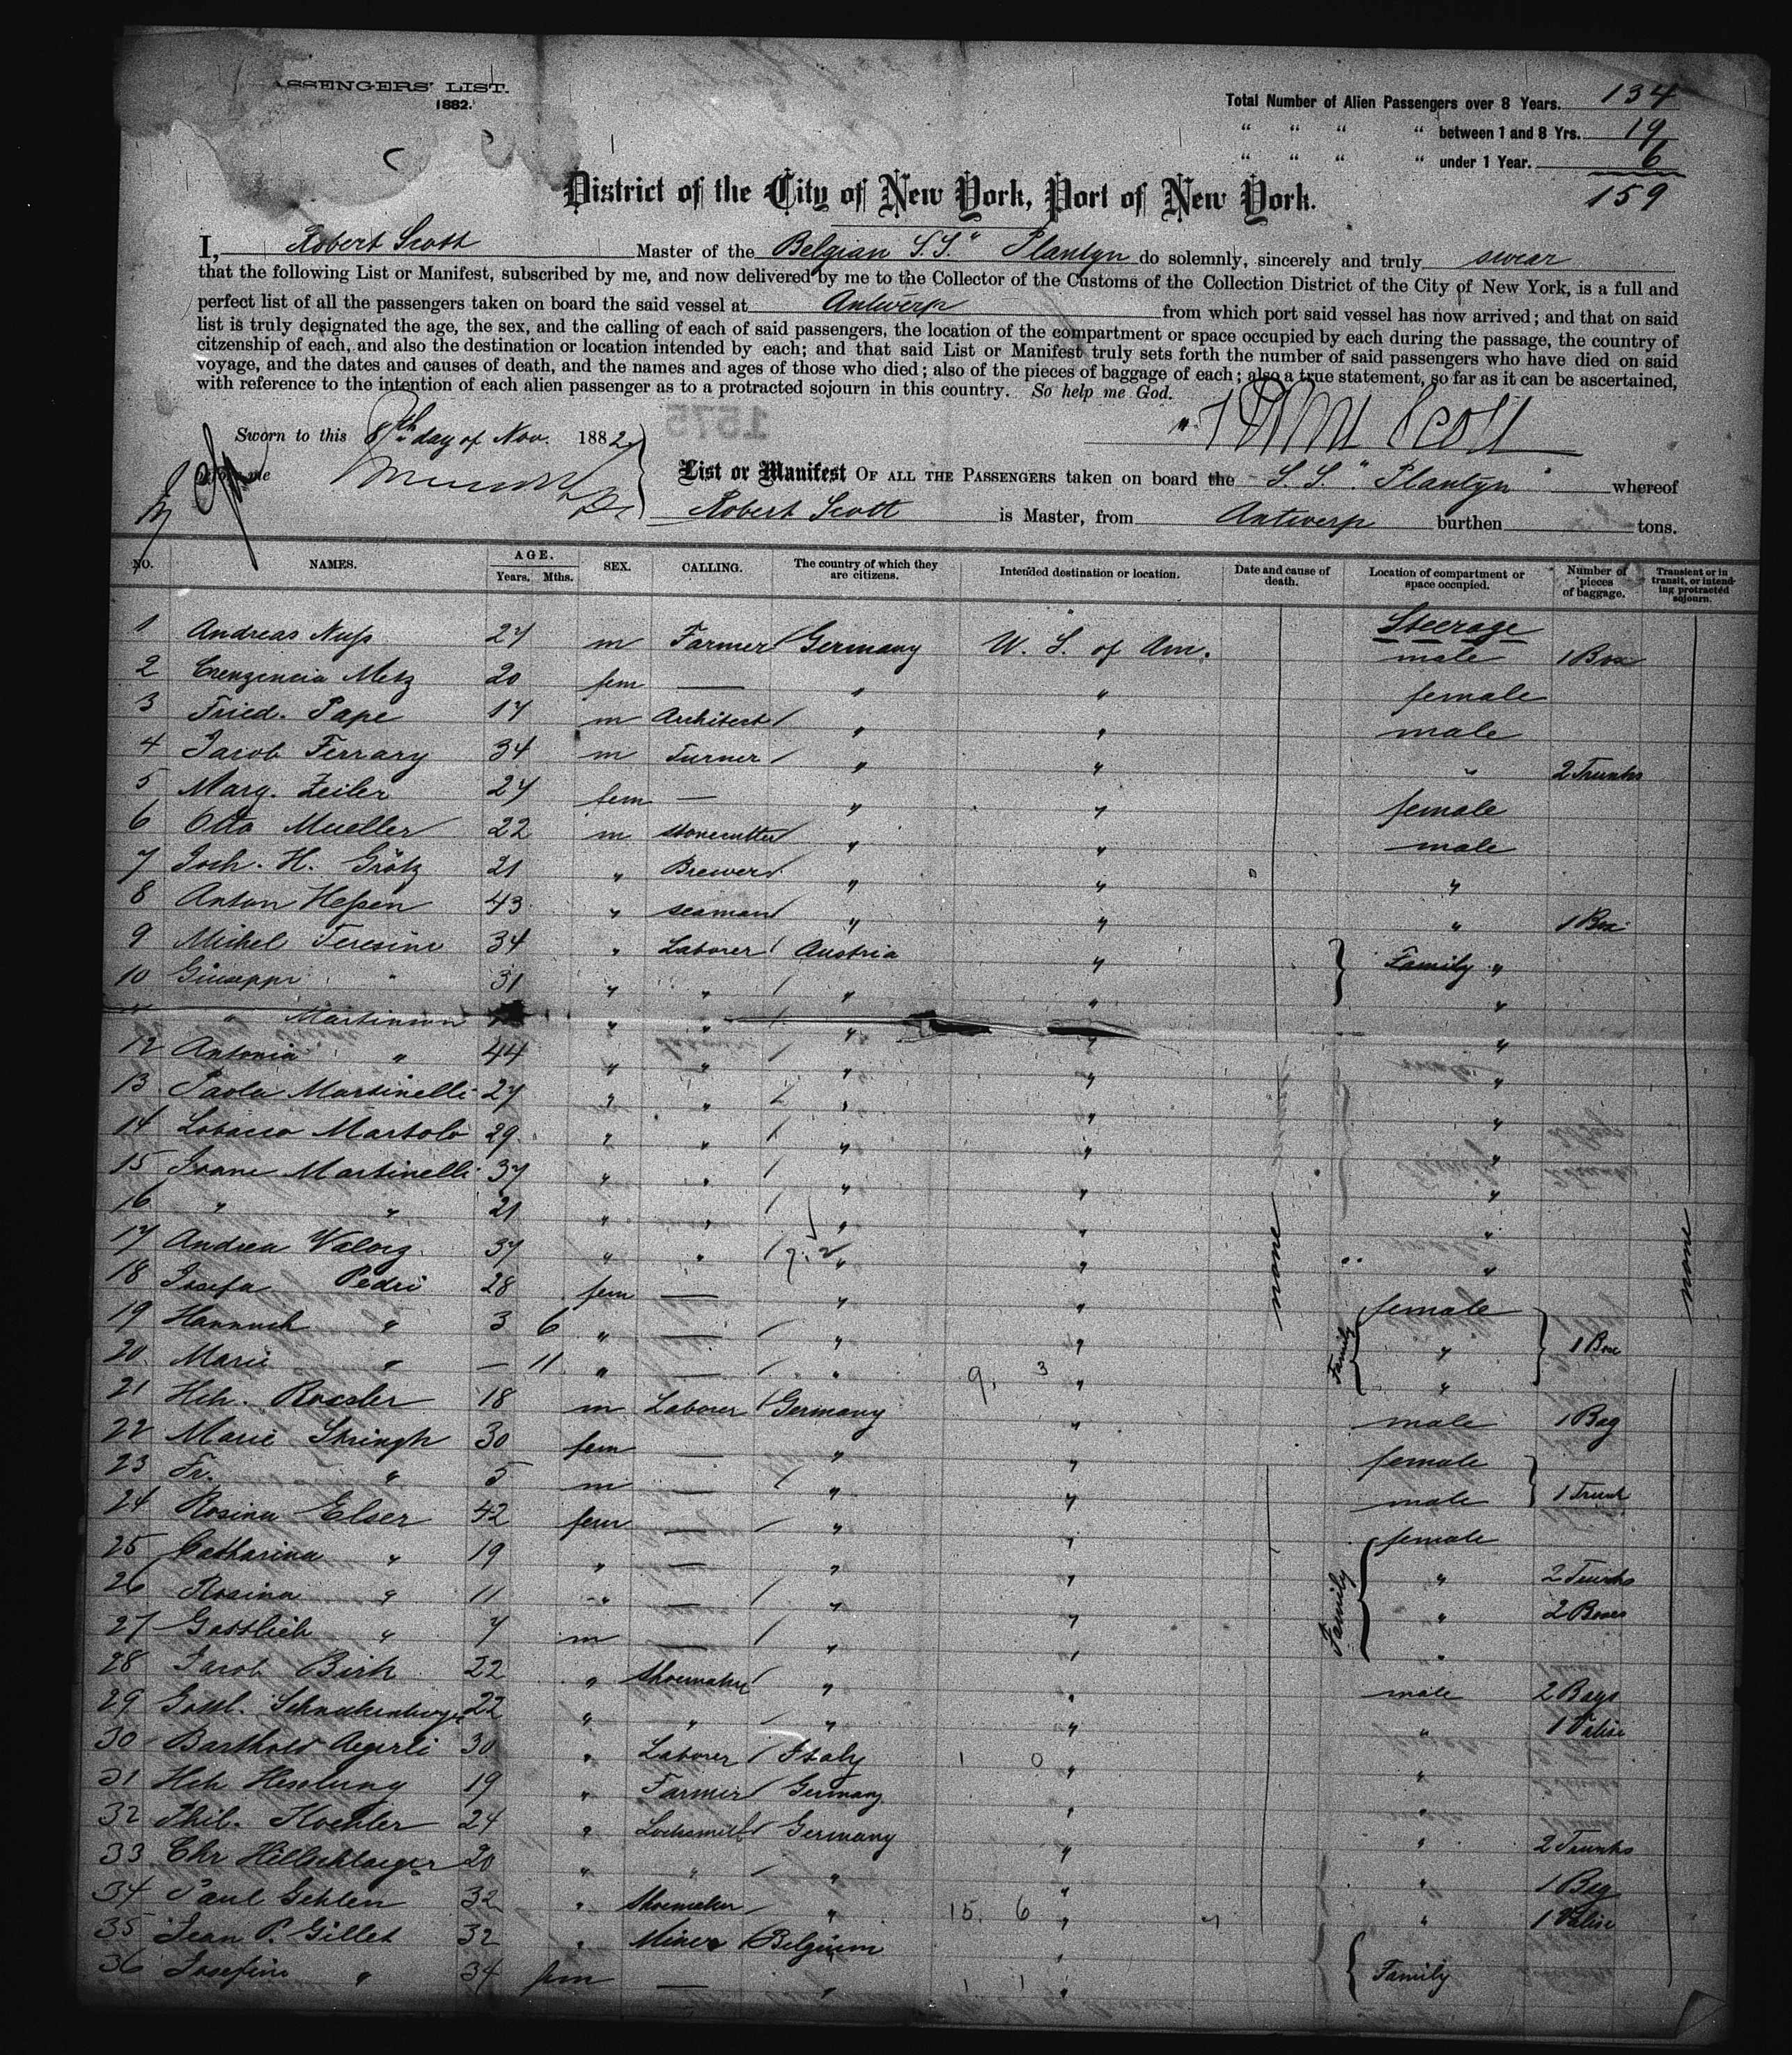 PASSENGERS' LIST.
1882.
Total Number of Alien Passengers over 8 Years. 134
" " " " between 1 and 8 Yrs. 19
" " " " under 1 Year. 6
159
District of the City of New York, Port of New York.
I, Robert Scott Master of the Belgian S.S. "Plantyn do solemnly, sincerely and truly swear
that the following List or Manifest, subscribed by me, and now delivered by me to the Collector of the Customs of the Collection District of the City of New York, is a full and
perfect list of all the passengers taken on board the said vessel at Antwerp from which port said vessel has now arrived; and that on said
list is truly designated the age, the sex, and the calling of each of said passengers, the location of the compartment or space occupied by each during the passage, the country of
citzenship of each, and also the destination or location intended by each; and that said List or Manifest truly sets forth the number of said passengers who have died on said
voyage, and the dates and causes of death, and the names and ages of those who died; also of the pieces of baggage of each; also a true statement, so far as it can be ascertained,
with reference to the intention of each alien passenger as to a protracted sojourn in this country. So help me God.
1575
Scott
Sworn to this 8th day of Nov. 1882
before me
List or Manifest OF ALL THE PASSENGERS taken on board the S.S. "Plantyn" whereof
Robert Scott is Master, from Antwerp burthen tons.
NO. NAMES. AGE. Years. Mths. SEX. CALLING. The country of which they are citizens. Intended destination or location. Date and cause of death. Location of compartment or space occupied. Number of pieces of baggage. Transient or in transit, or intending protracted sojourn.
Steerage
1 Andreas Nuſs 27 m Farmer Germany U. S. of Am. male 1 Box
2 Crenzencia Metz 20 fem — " " female
3 Fried. Pape 17 m Architect " " male
4 Jacob Ferrary 34 m Turner " " " 2 Trunks
5 Marg. Zeiler 27 fem — " " female
6 Otto Mueller 22 m stonecutter " " male
7 Joch. H. Grötz 21 " Brewer " " "
8 Anton Heſsen 43 " seaman " " " 1 Box
9 Michel Teresine 34 " Laborer Austria " Family "
10 Giuseppe " 31 " " " " "
" Martinson " " " " "
12 Antonia " 44 " " " " "
13 Paola Martinelli 27 " " " " "
14 Lobacco Martolo 29 " " " " "
15 Ivane Martinelli 37 " " " " "
16 " " 21 " " " " "
17 Andrea Valorz 37 " " " " "
18 Josefa Pedri 28 fem — " " female
19 Hannuch " 3 6 " — " " Family " 1 Box
20 Marie " — 11 " — " 9. 3 " "
21 Hch. Rossler 18 m Laborer Germany " male 1 Bag
22 Marie Skringh 30 fem — " " female
23 Fr. " 5 m — " " male 1 Trunk
24 Rosina Elser 42 fem — " " female
25 Catharina " 19 " — " " " 2 Trunks
26 Rosina " 11 " — " " Family " 2 Boxes
27 Gottlieb " 7 m — " " "
28 Jacob Birk 22 " Shoemaker " " male 2 Bags
29 Gottl. Schneckenburger 22 " " " " " 1 Valise
30 Barthold Agerli 30 " Laborer Italy 1 0 " "
31 Hch Hesslung 19 " Farmer Germany " "
32 Phil. Koehler 24 " Locksmith Germany " " 2 Trunks
33 Chr Hillschlaeger 20 " " " " " 1 Bag
34 Paul Gehlen 32 " Shoemaker " 15. 6 " " 1 Valise
35 Jean P. Gillet 32 " Miner Belgium "
36 Josefine " 34 fem — " 1 1 " Family
none
none